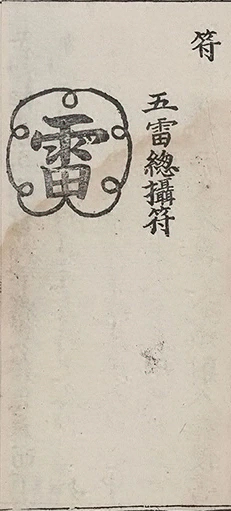 符
五雷總攝符
雷